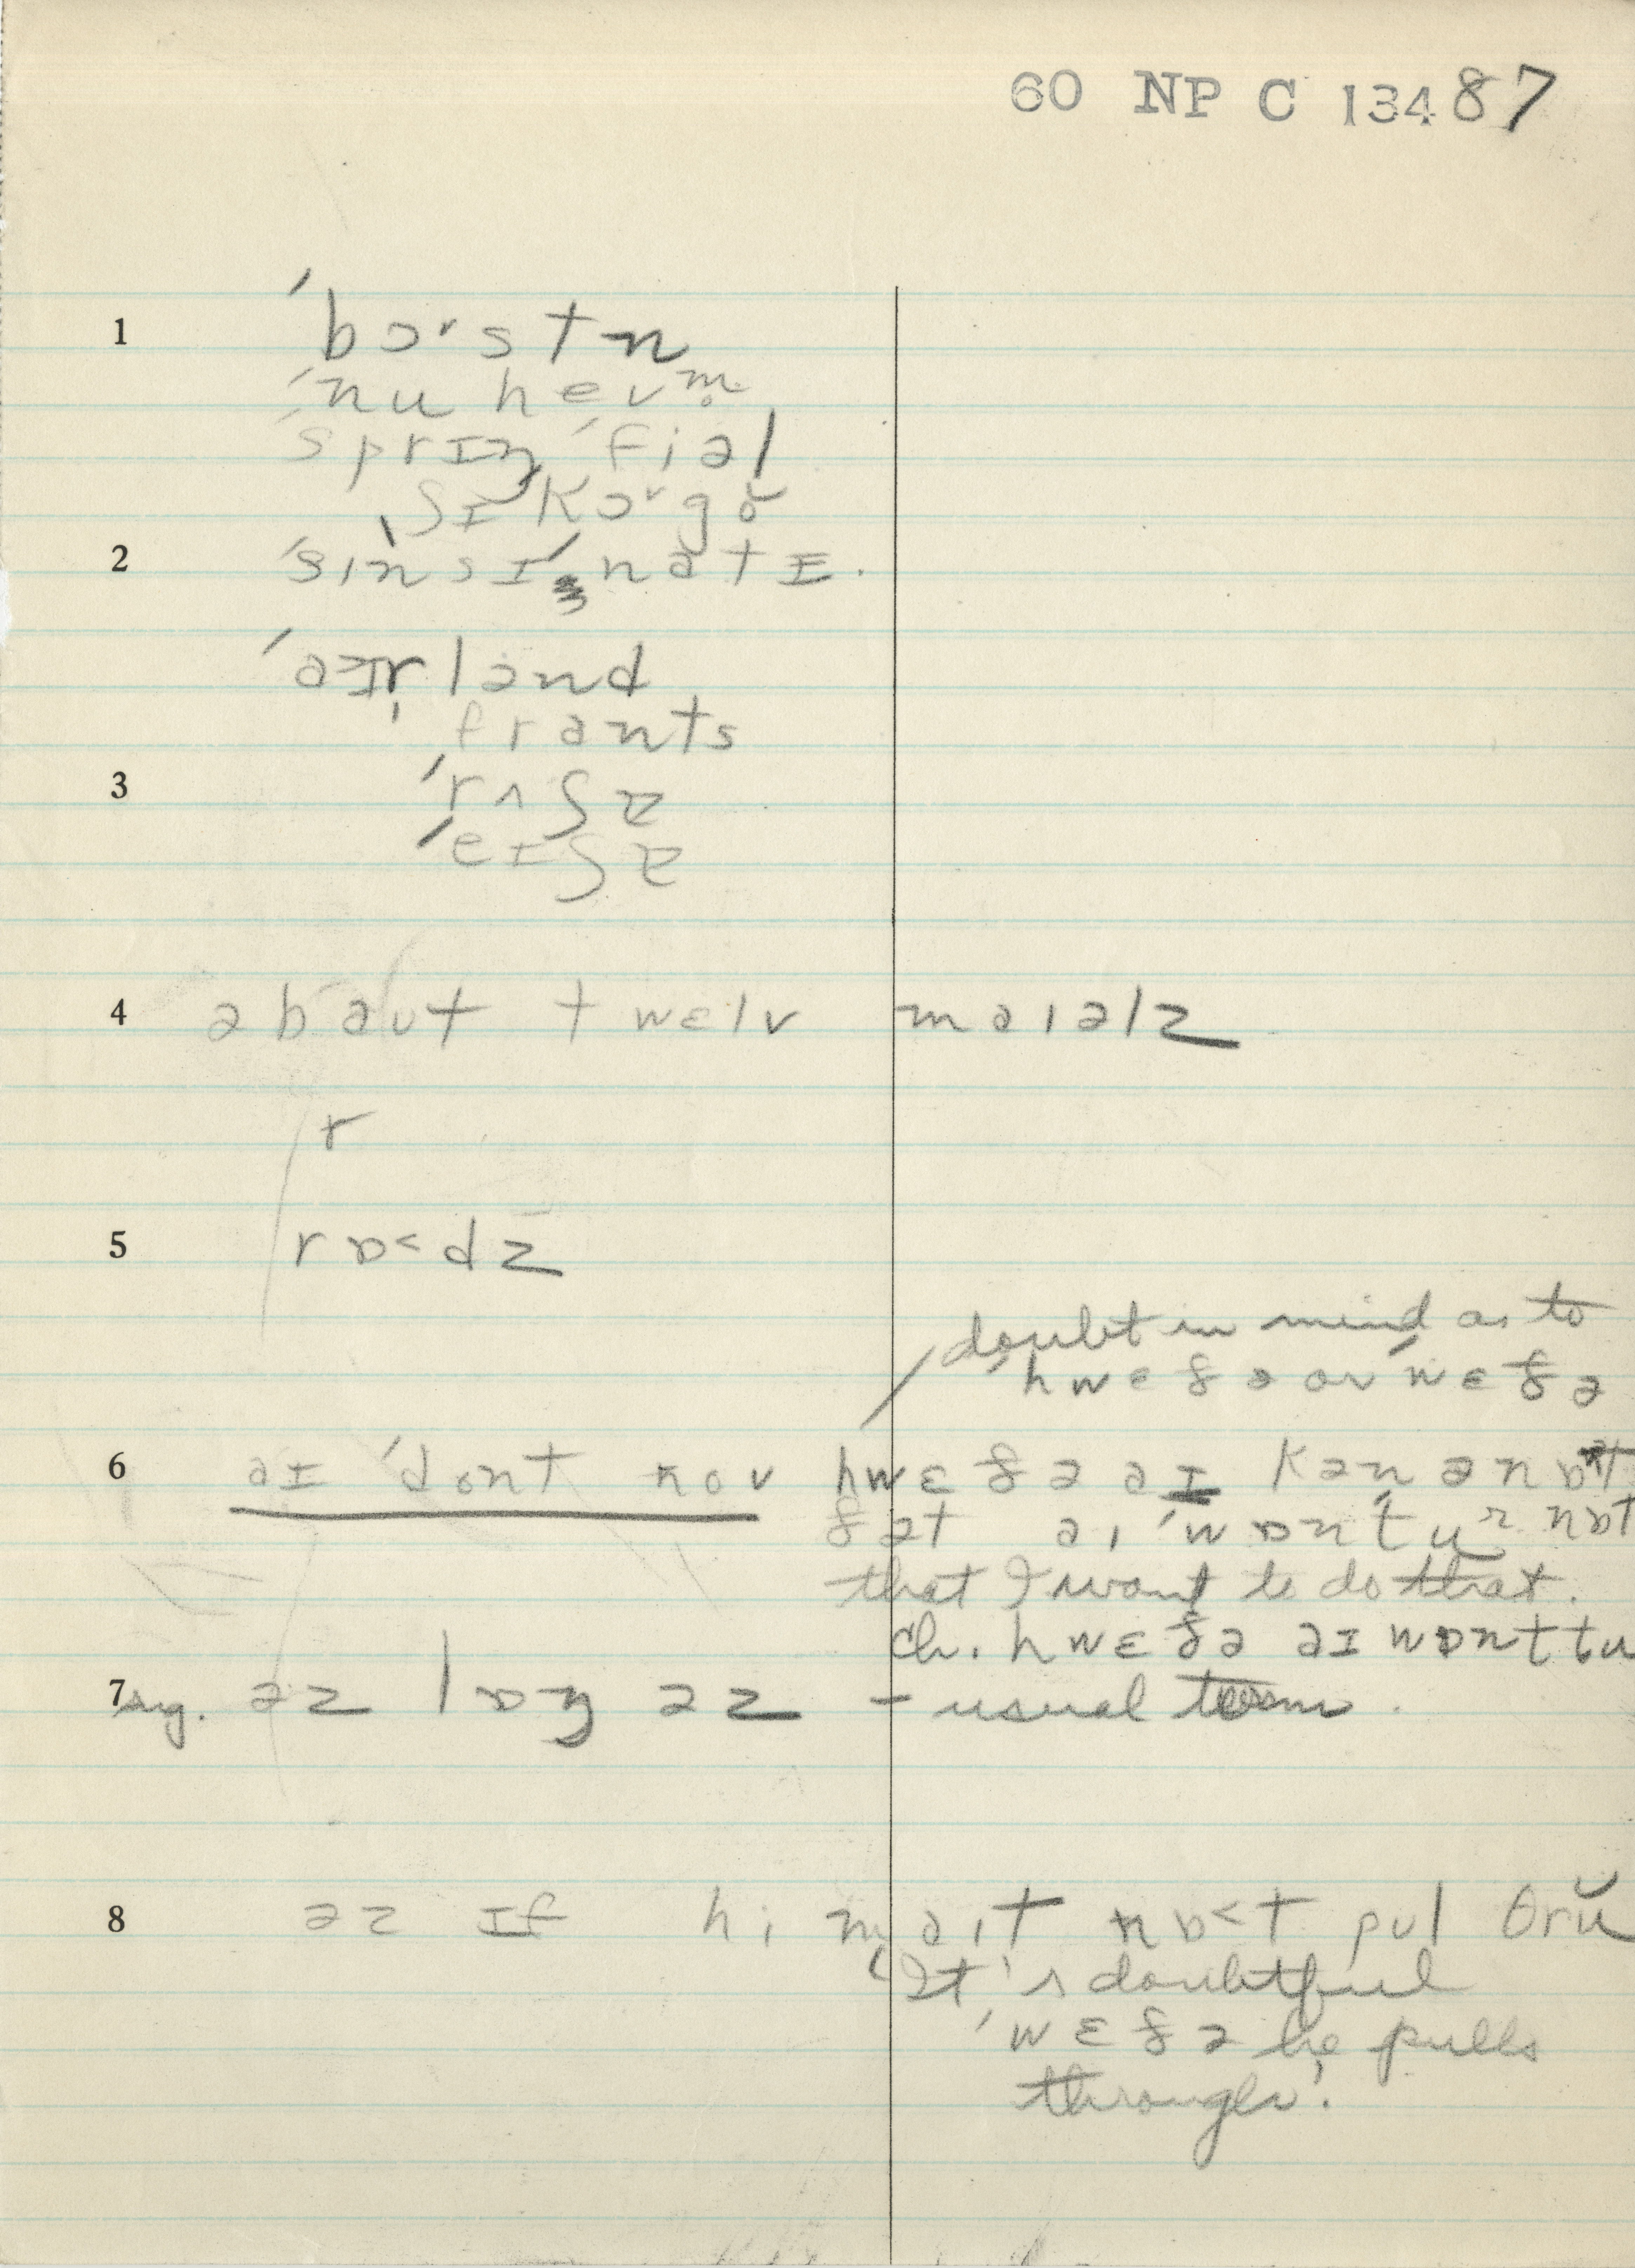 60 NP C 13487
1 ˈbɔ˞stn
ˈnu hevm̩
ˈsprɪŋˈfiəl
ˌʃɪˈkɔ˞gŏ
2 ˈsɪnsɪˈnætɪ.
ˈaɪrlənd
ˈfrants
3 ˈrʌʃɪ
ˈeɪʃɪ
4 əbaʊt twɛlv maɪəlz
r
5 rɒ<dz
doubt in mind as to
ˈhwɛðə or ˈwɛðə
6 aɪ ˈdont noʊ hwɛðə aɪ kæn ə nɒt
ðət aɪ ˈwɒnt u ɚ nɒt
that I want to do that.
ch. hwɛðə aɪ wɒnt tu
7 sug. əz lɒŋ əz – usual term.
8 əz ɪf hi maɪt nɒ<t pʊl θrŭ
'It's doubtful
ˈwɛðə he pulls
through.'